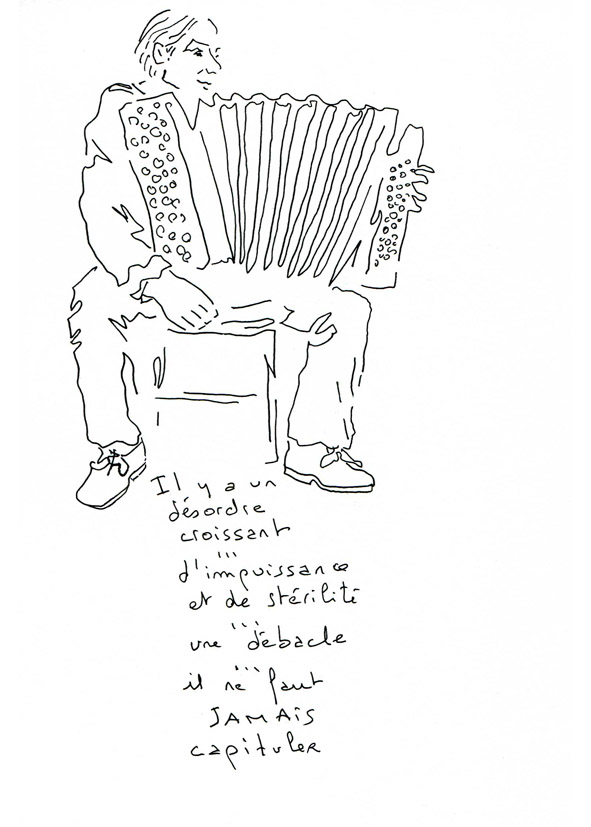 Il y a un
désordre
croissant
...
d'impuissance
et de stérilité
...
une débacle
...
il ne faut
JAMAIS
capituler